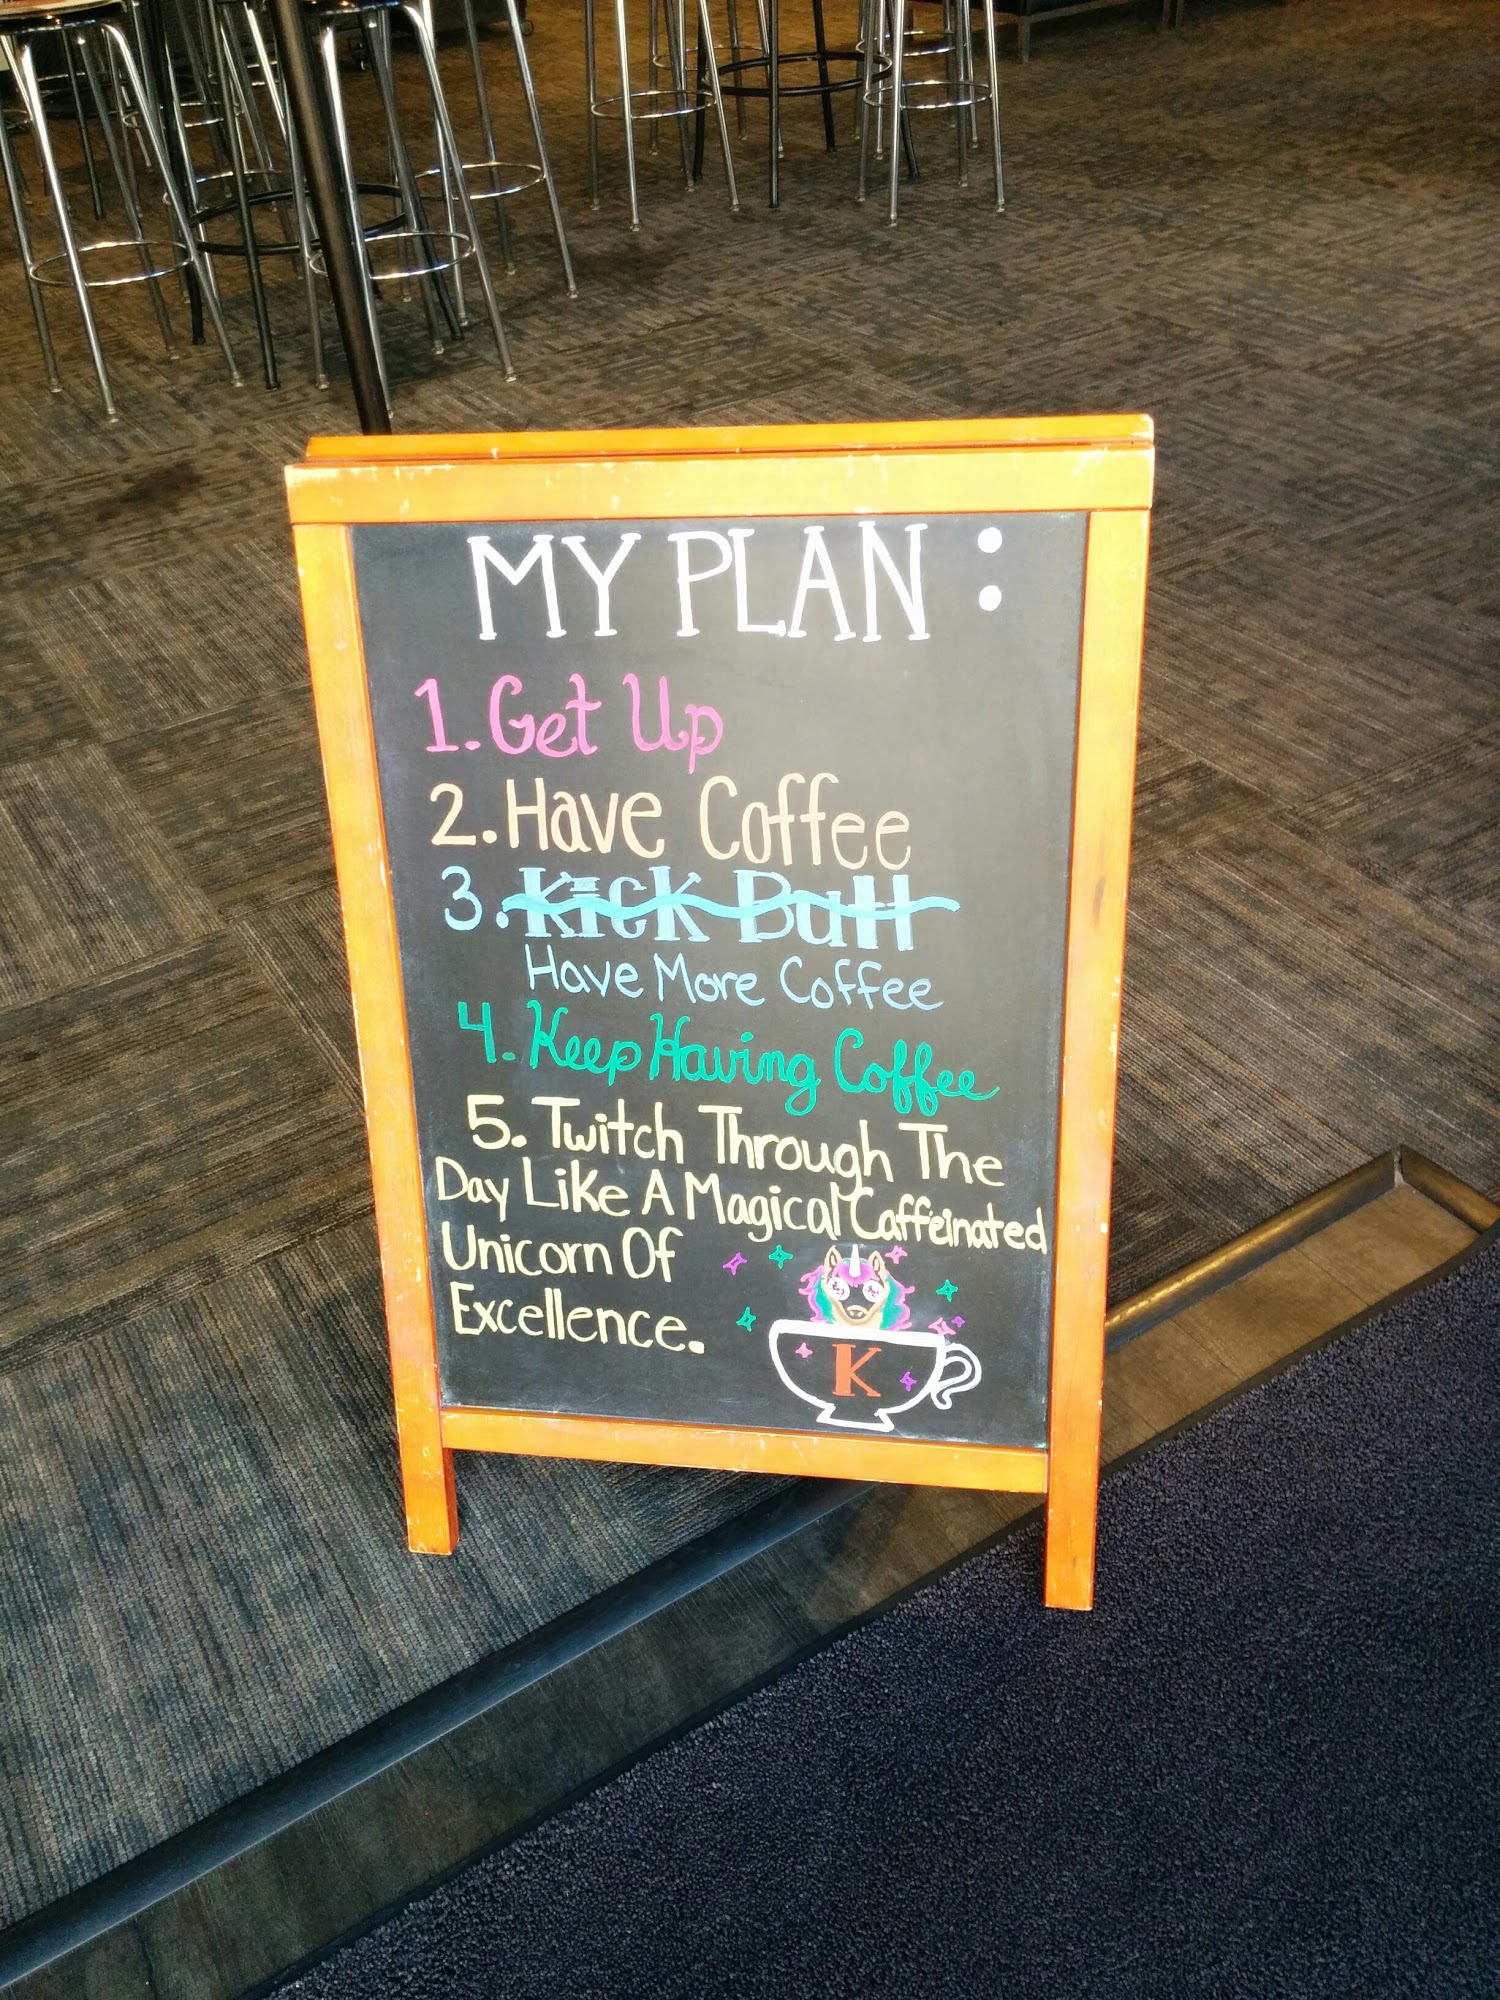 MY PLAN:
1. Get Up
2. Have Coffee
3. Kick Butt
Have More Coffee
4. Keep Having Coffee
5. Twitch Through The
Day Like A Magical Caffeinated
Unicorn Of
Excellence.
K